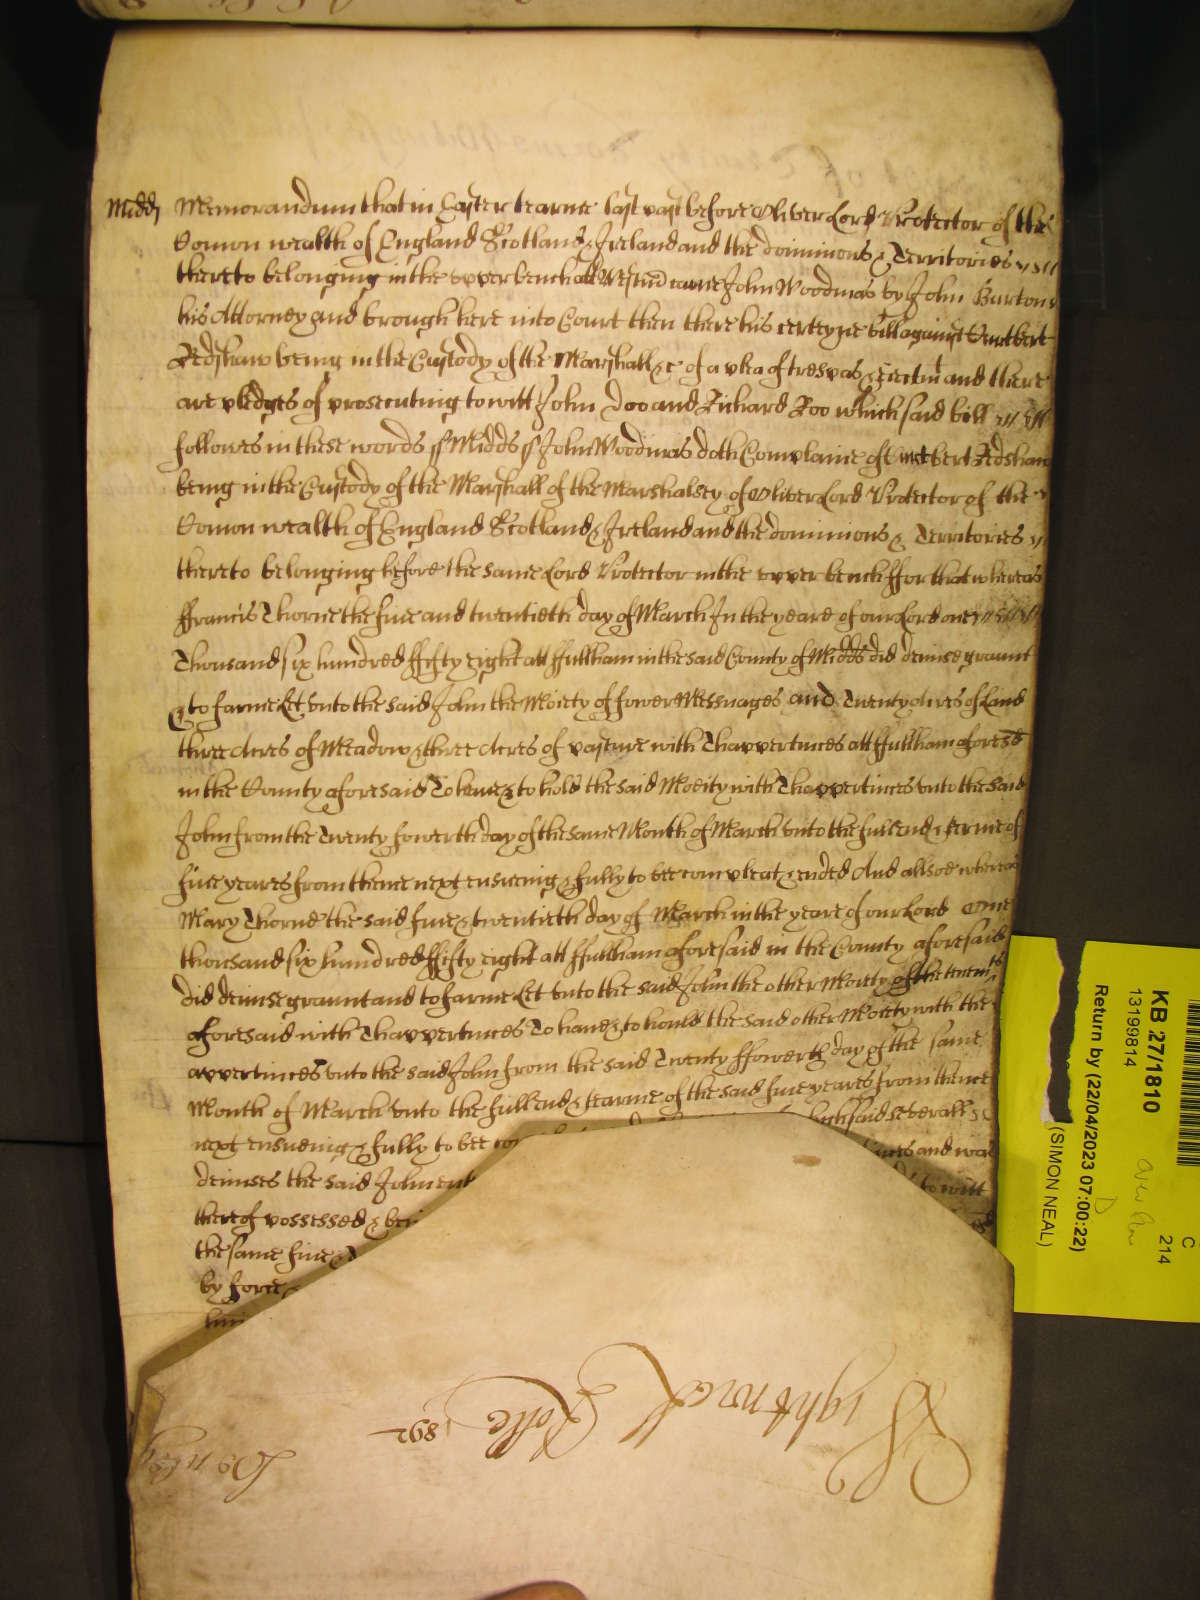 Midds Memorandum that in Easter tearme last past before Oliver Lord Protector of the
Comon wealth of England Scotland & Ireland and the dominions & Territories
thereto belonging in the upper bench att Westm came John Woodmas by John Burton
his Attorney and brough here into Court then there his certeyne bill against Cuthbert
Redshaw being in the Custody of the Marshall &c of a plea of trespas & eiectm and there
are pledges of prosecuting to witt John Doo and Richard Roo which said bill
followes in these words ss Midds ss John Woodmas doth Complaine of Cuthbert Redshaw
being in the Custody of the Marshall of the Marshalsey of Oliver Lord Protector of the
Comon wealth of England Scotland & Ireland and the dominions & Territories
thereto belonging before the same Lord Protector in the upper bench ffor that whereas
ffrancis Thorne the five and twentieth day of March In the yeare of our Lord one
Thousand six hundred ffifty eight att ffullham in the said County of Midds did demise graunt
& to farme Let unto the said John the Moiety of fower Messuages and Twenty Acres of Land
three Acres of Meadow & three Acres of pasture with Thappertinces att ffullham aforesd
in the County aforesaid To have & to hold the said Moeity with Thappertinces unto the said
John from the Twenty fowerth day of the same Month of March unto the full end & terme of
five yeares from thence next ensueing & fully to bee compleat & ended And allsoe whereas
Mary Thorne the said five & twentieth day of March in the yeare of our Lord One
thousand six hundred ffifty eight att ffullham aforesaid in the County aforesaid
did demise graunt and to farme Let unto the said John the other Moiety of the tenemts
aforesaid with Thappertinces To have & to hould the said other Moiety with the
appertinces unto the said John from the said Twenty ffowerth day of the same
Month of March unto the full end & tearme of the said five yeares from thence
next ensueing & fully to bee com said severall
demises the said John ent and was
thereof possessed & bei to witt
the same five &
by force &
Wightwick Rolle 1892
KB 27/1810
13199814
Return by (22/04/2023 07:00:22)
(SIMON NEAL)
C
214